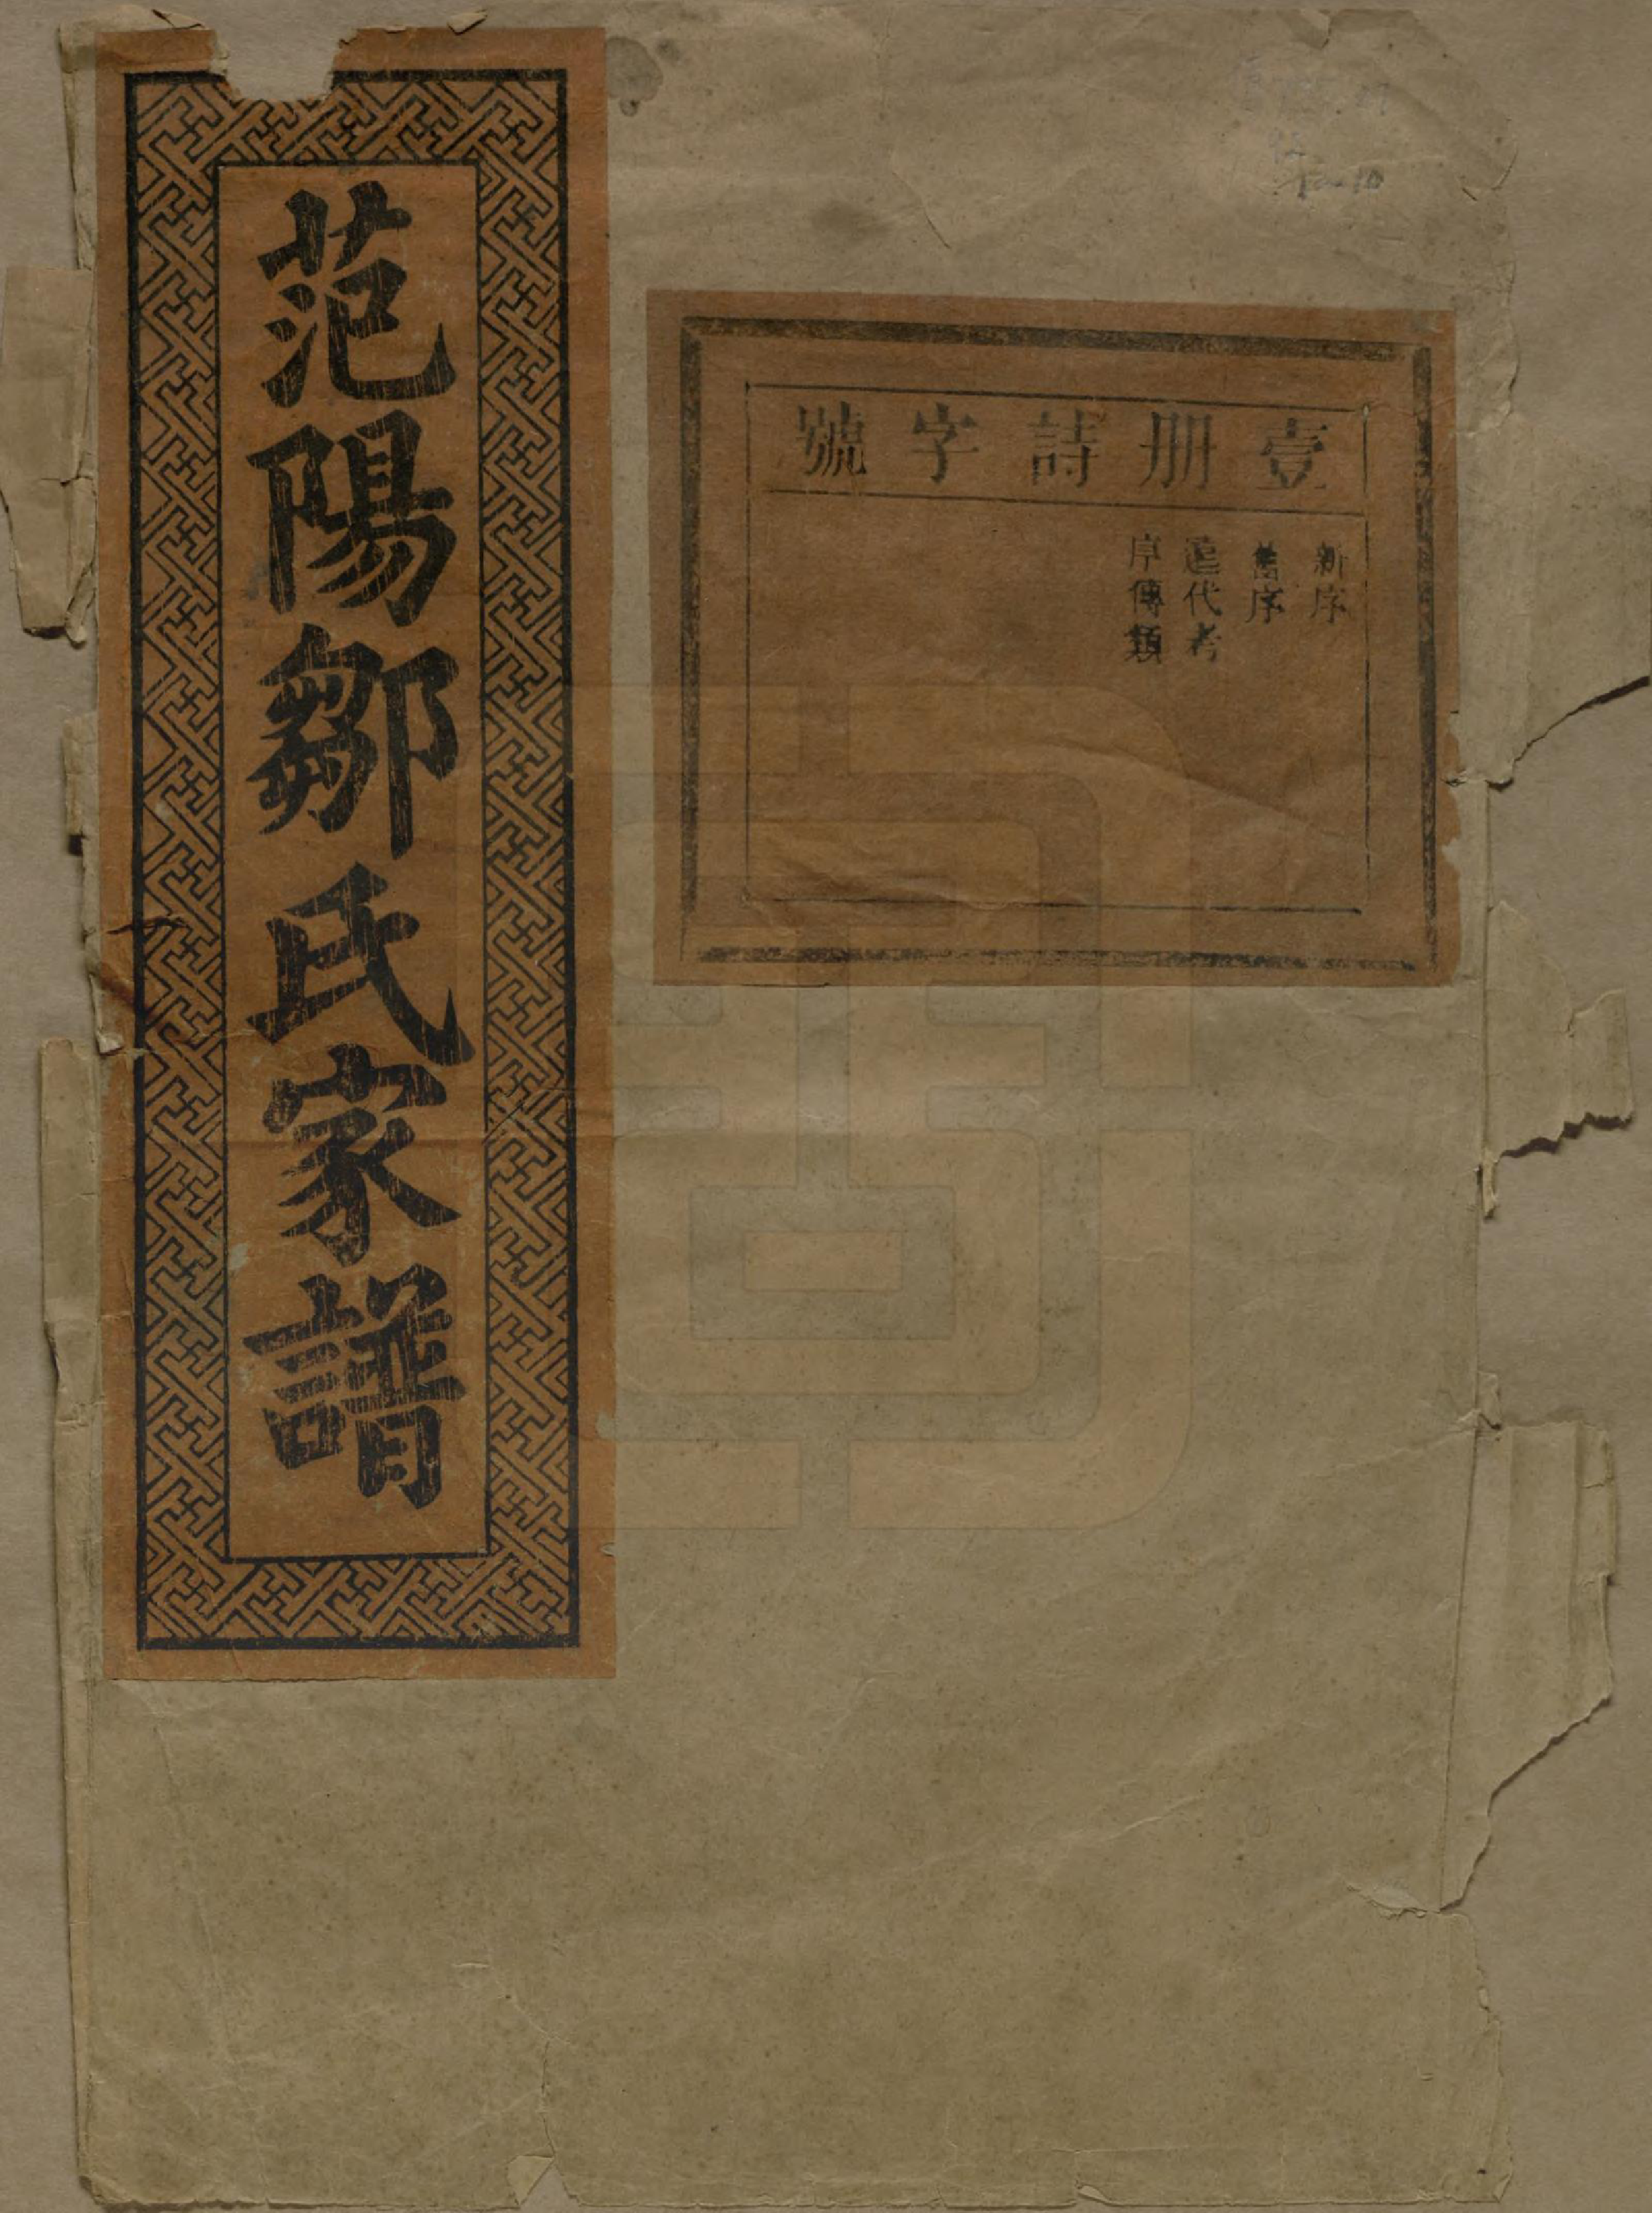 范陽鄒氏家譜
壹册詩字號
新序
舊序
遥代考
序傳類